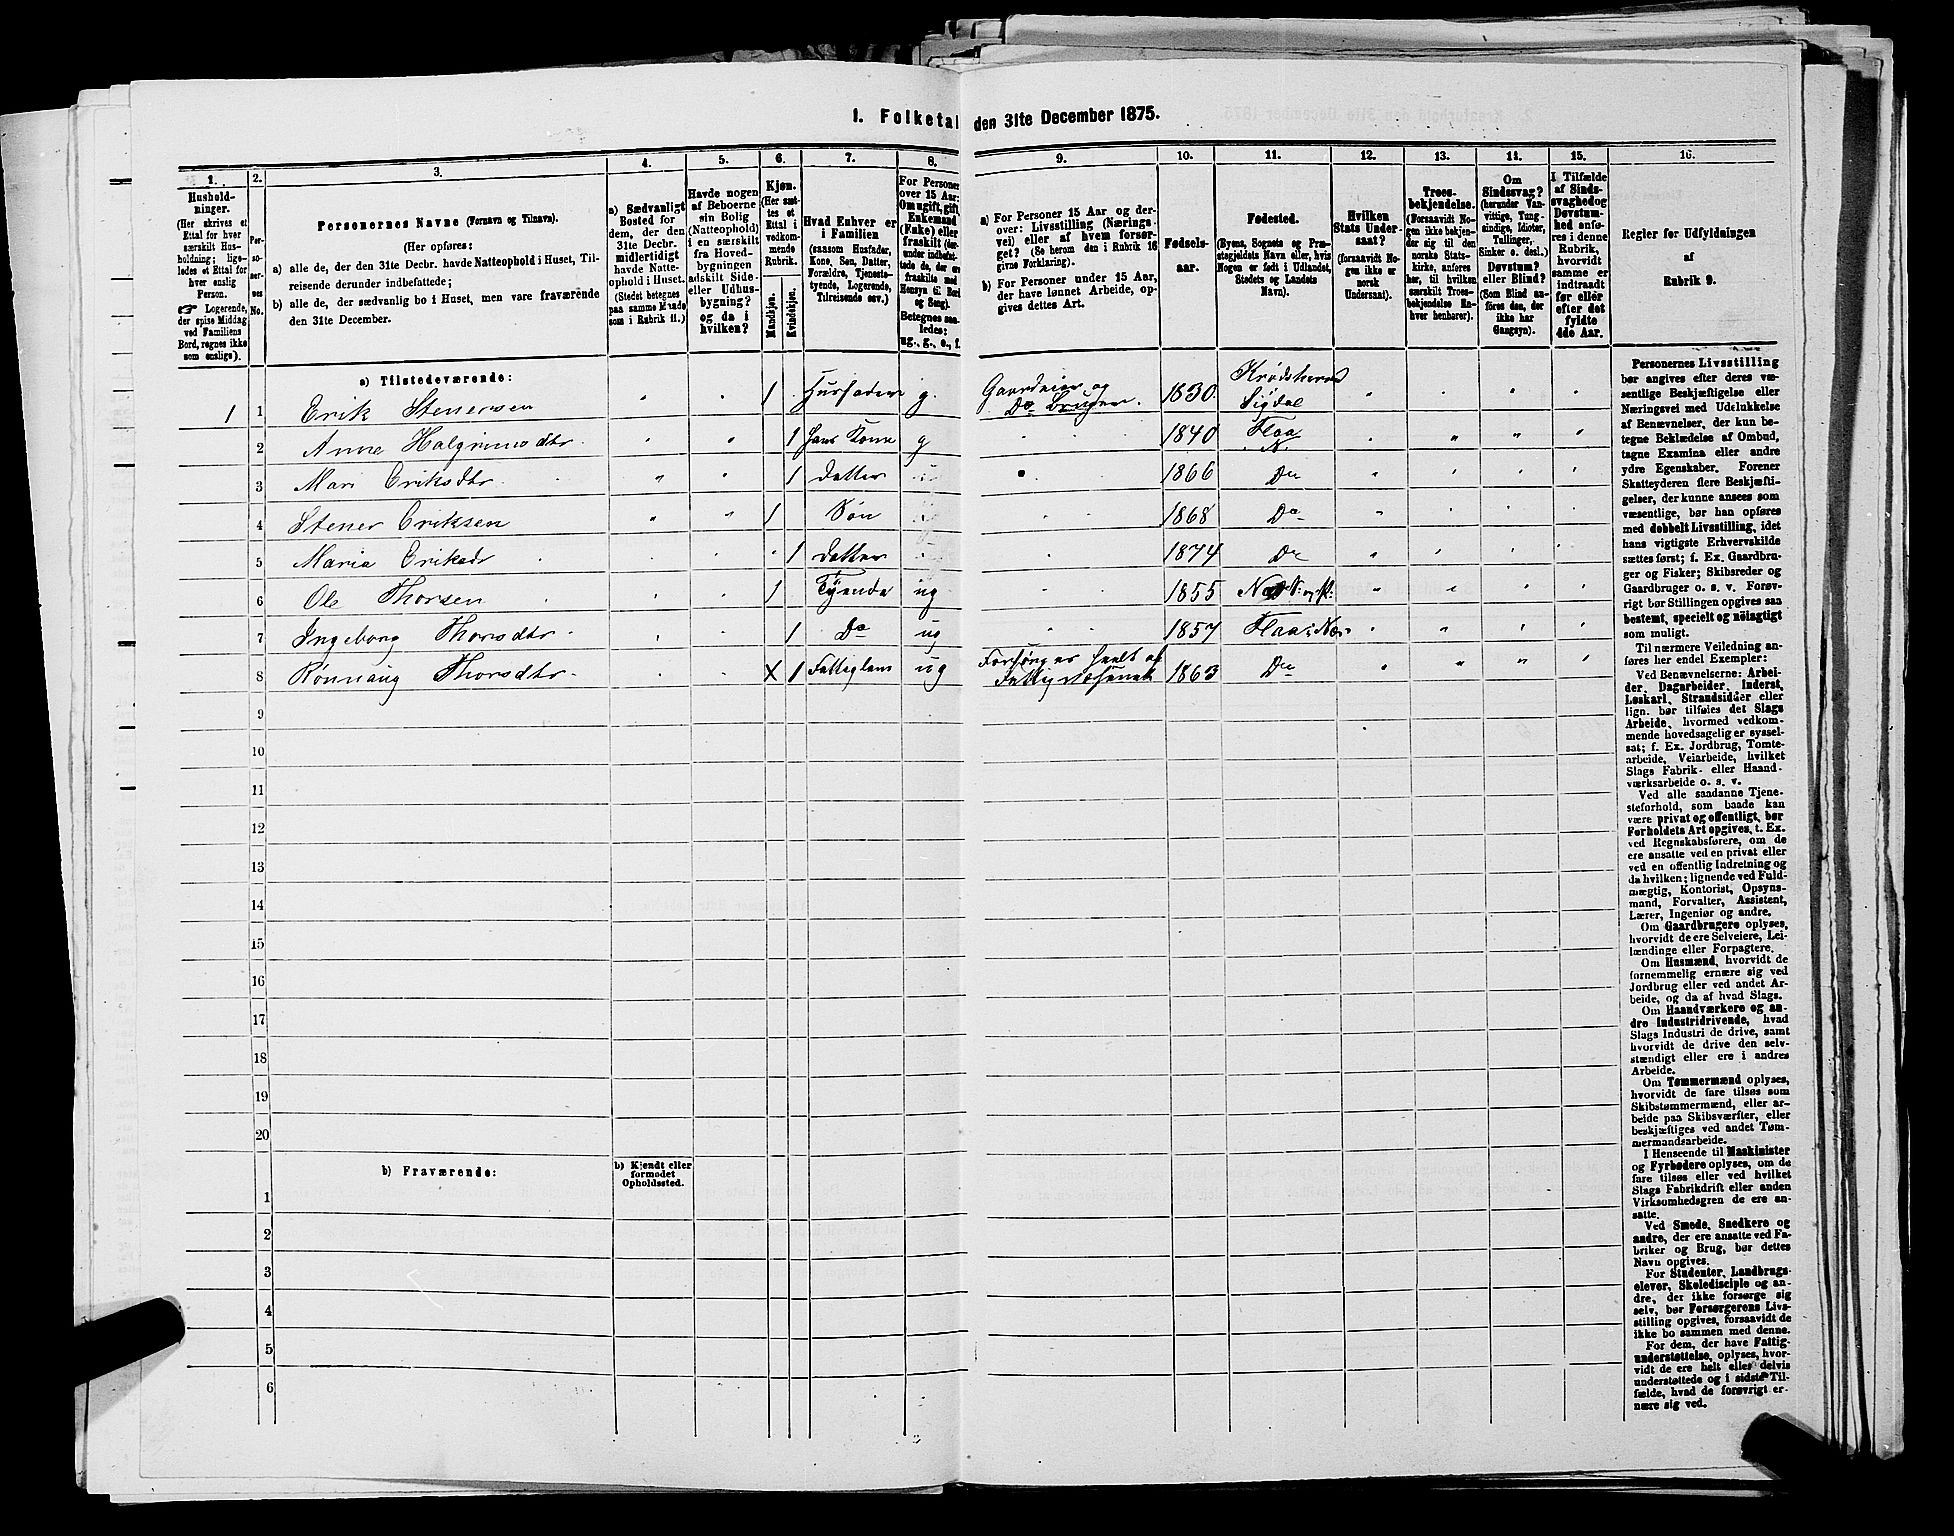 1. Folketal den 31te December 1875.
1.
Hushold-
ninger.
(Her skrives et
Ettal for hver
særskilt Hus-
holdning; lige-
ledes et Ettal for
hver enslig
Person.
Logerende,
der spise Middag
ved Familiens
Bord, regnes ikke
som enslige).
2.
Per-
so-
ner-
nes
No.
3.
Personernes Navne (Fornavn og Tilnavn).
(Her opføres:
a) alle de, der den 31te Decbr. havde Natteophold i Huset, Til-
reisende derunder indbefattede;
b) alle de, der sædvanlig bo i Huset, men vare fraværende
den 31te December.
4.
a) Sædvanligt
Bosted for
dem, der den
31te Decbr.
midlertidigt
havde Natte-
ophold i Huset.
(Stedet betegnes
paa samme Maade
som i Rubrik 11.)
5.
Havde nogen
af Beboerne
sin Bolig
(Natteophold)
i en særskilt
fra Hoved-
bygningen
adskilt Side-
eller Udhus-
bygning?
og da i
hvilken?
6.
Kjøn.
(Her sæt-
tes et
Ettal i
vedkom-
mende
Rubrik.
Mandkjøn.
Kvindekjøn.
7.
Hvad Enhver er
i Familien
(saasom Husfader,
Kone, Søn, Datter,
Forældre, Tjeneste-
tyende, Logerende,
Tilreisende osv.)
8.
For Personer
over 15 Aar:
Om ugift, gift,
Enkemand
(Enke) eller
fraskilt (der-
under indbefat-
tede de, der ere
fraskilte med
Hensyn til Bord
og Seng).
Betegnes saa-
ledes:
ug., g., e., f.
9.
a) For Personer 15 Aar og der-
over: Livsstilling (Nærings-
vei) eller af hvem forsør-
get? (Se herom den i Rubrik 16
givne Forklaring).
b) For Personer under 15 Aar,
der have lønnet Arbeide, op-
gives dettes Art.
10.
Fødsels-
aar.
11.
Fødested.
(Byens, Sognets og Præ-
stegjeldets Navn eller, hvis
Nogen er født i Udlandet,
Stedets og Landets
Navn).
12.
Hvilken
Stats Under-
saat?
(forsaavidt No-
gen ikke er
norsk
Undersaat).
13.
Troes-
bekjendelse.
(Forsaavidt No-
gen ikke bekjen-
der sig til den
norske Stats-
kirke, anføres
her, til hvilken
særskilt Troes-
bekjendelse En-
hver henhører).
14.
Om
Sindssvag?
(herunder Van-
vittige, Tung-
sindige, Idioter,
Tullinger,
Sinker o. desl.)
Døvstum?
eller Blind?
(Som Blind an-
føres den, der
ikke har
Gangsyn).
15.
I Tilfælde
af Sinds-
svaghed og
Døvstum-
hed anfø-
res i denne
Rubrik,
hvorvidt
samme er
indtraadt
før eller
efter det
fyldte
4de Aar.
16.
Regler for Udfyldningen
af
Rubrik 9.
a) Tilstedeværende:
1 1 Erik Stenersen " " 1 Husfader g. Gaardeier og Do Bruger. 1830 Krødsherad Sigdal
2 Anne Halgrimsdtr " " 1 hans Kone g 1840 Flaa N.
3 Mari Eriksdtr " " 1 Datter 1866 Do
4 Stener Eriksen " " 1 Søn 1868 Do
5 Maria Eriksdr 1 Datter 1874 Do
6 Ole Thorsen 1 Tyende ug 1855 Næs
7 Ingeborg Thorsdtr 1 Do ug 1857 Flaa i Næs
8 Rønnaug Thorsdtr. X 1 Fattiglem ug Forsørges heelt af Fattigvæsenet 1863 Do
9
10
11
12
13
14
15
16
17
18
19
20
b) Fraværende:
b) Kjendt eller
formodet
Opholdssted.
1
2
3
4
5
6
Personernes Livsstilling
bør angives efter deres væ-
sentlige Beskjæftigelse eller
Næringsvei med Udelukkelse
af Benævnelser, der kun be-
tegne Beklædelse af Ombud,
tagne Examina eller andre
ydre Egenskaber. Forener
Skatteyderen flere Beskjæfti-
gelser, der kunne ansees som
væsentlige, bør han opføres
med dobbelt Livsstilling, idet
hans vigtigste Erhvervskilde
sættes først; f. Ex. Gaardbru-
ger og Fisker; Skibsreder og
Gaardbruger o. s. v. Forøv-
rigt bør Stillingen opgives saa
bestemt, specielt og nøiagtigt
som muligt.
Til nærmere Veiledning an-
føres her endel Exempler:
Ved Benævnelserne: Arbei-
der, Dagarbeider, Inderst,
Løskarl, Strandsidder eller
lign. bør tilføies det Slags
Arbeide, hvormed vedkom-
mende hovedsagelig er syssel-
sat; f. Ex. Jordbrug, Tomte-
arbeide, Veiarbeide, hvilket
Slags Fabrik- eller Haand-
værksarbeide o. s. v.
Ved alle saadanne Tjene-
steforhold, som baade kan
være privat og offentligt, bør
Forholdets Art opgives, t. Ex.
ved Regnskabsførere, om de
ere ansatte ved en privat eller
ved en offentlig Indretning og
da hvilken; lignende ved Fuld-
mægtig, Kontorist, Opsyns-
mand, Forvalter, Assistent,
Lærer, Ingeniør og andre.
Om Gaardbrugere oplyses,
hvorvidt de ere Selveiere, Lei-
lændinge eller Forpagtere.
Om Husmænd, hvorvidt de
fornemmelig ernære sig ved
Jordbrug eller ved andet Ar-
beide, og da af hvad Slags.
Om Haandværkere og an-
dre Industridrivende, hvad
Slags Industri de drive, samt
hvorvidt de drive den selv-
stændigt eller ere i andres
Arbeide.
Om Tømmermænd oplyses,
hvorvidt de fare tilsøs som
Skibstømmermænd, eller ar-
beide paa Skibsværfter, eller
beskjæftiges ved andet Tøm-
mermandsarbeide.
I Henseende til Maskinister
og Fyrbødere oplyses, om de
fare tilsøs eller ved hvilket
Slags Fabrikdrift eller anden
Virksomhedsgren de ere an-
satte.
Ved Smede, Snedkere og
andre, der ere ansatte ved Fa-
briker og Brug, bør dettes
Navn opgives.
For Studenter, Landbrugs-
elever, Skoledisciple og an-
dre, der ikke forsørge sig
selv, bør Forsørgerens Livs-
stilling opgives, forsaavidt de
ikke bo sammen med denne.
For dem, der have Fattig-
understøttelse, oplyses, hvor-
vidt de ere helt eller delvis
understøttede og i sidste Til-
fælde, hvad de forøvrigt er-
nære sig ved.